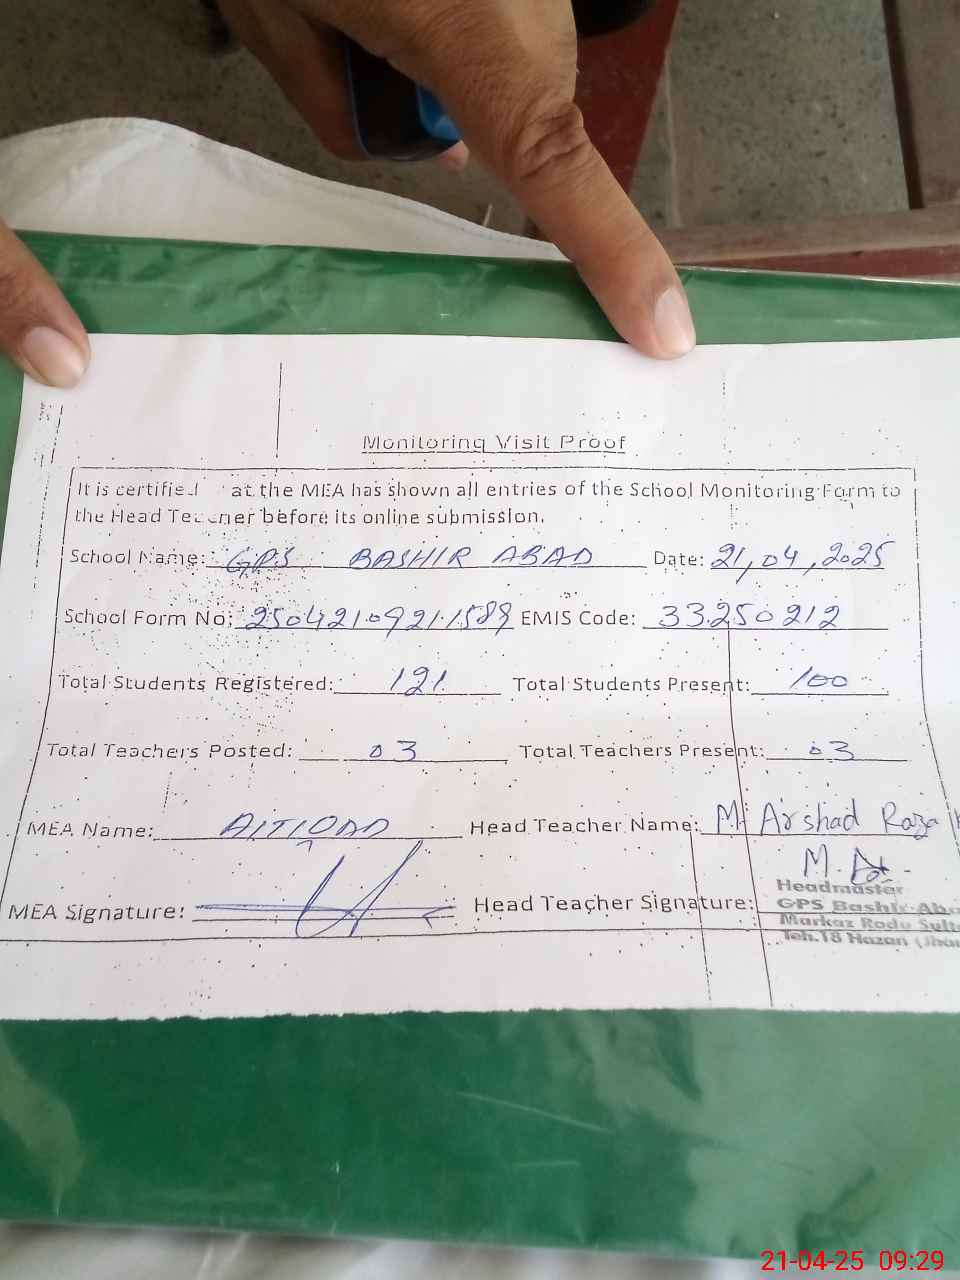 Monitoring Visit Proof
It is certified at the MEA has shown all entries of the School Monitoring Form to
the Head Teacher before its online submission.
School Name: GPS BASHIR ABAD Date: 21,04,2025
School Form No: 250421092111589 EMIS Code: 33250212
Total Students Registered: 121 Total Students Present: 100
Total Teachers Posted: 03 Total Teachers Present: 03
MEA Name: Head Teacher Name: M. Arshad Raza
MEA Signature: Head Teacher Signature:
Headmaster
GPS Bashir Aba
Markaz Rodu Sult
Teh.18 Hazari (Jha
21-04-25 09:29